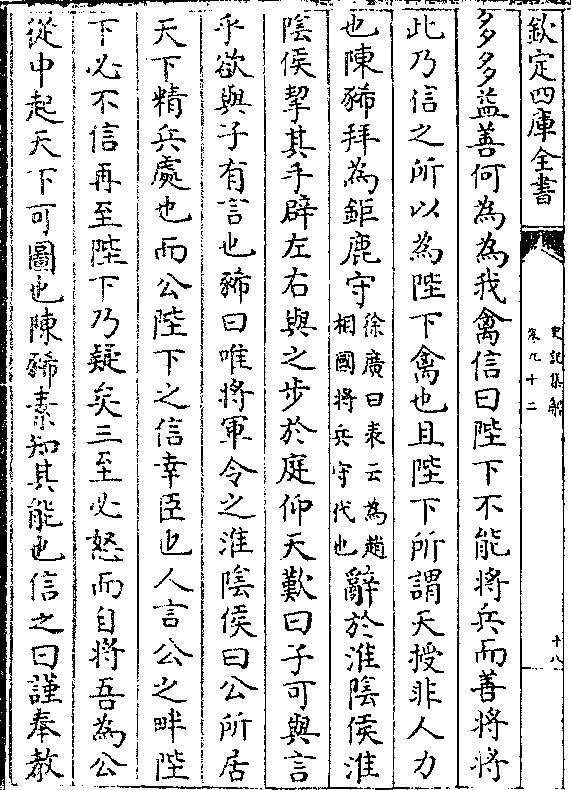 欽定四庫全書
史記集解
卷九十二
十八
多多益善何為為我禽信曰陛下不能將兵而善將將
此乃信之所以為陛下禽也且陛下所謂天授非人力
也陳豨拜為鉅鹿守徐廣曰表云為趙相國將兵守代也辭於淮陰侯淮
陰侯挈其手辟左右與之步於庭仰天歎曰子可與言
乎欲與子有言也豨曰唯將軍令之淮陰侯曰公所居
天下精兵處也而公陛下之信幸臣也人言公之畔陛
下必不信再至陛下乃疑矣三至必怒而自將吾為公
從中起天下可圖也陳豨素知其能也信之曰謹奉教